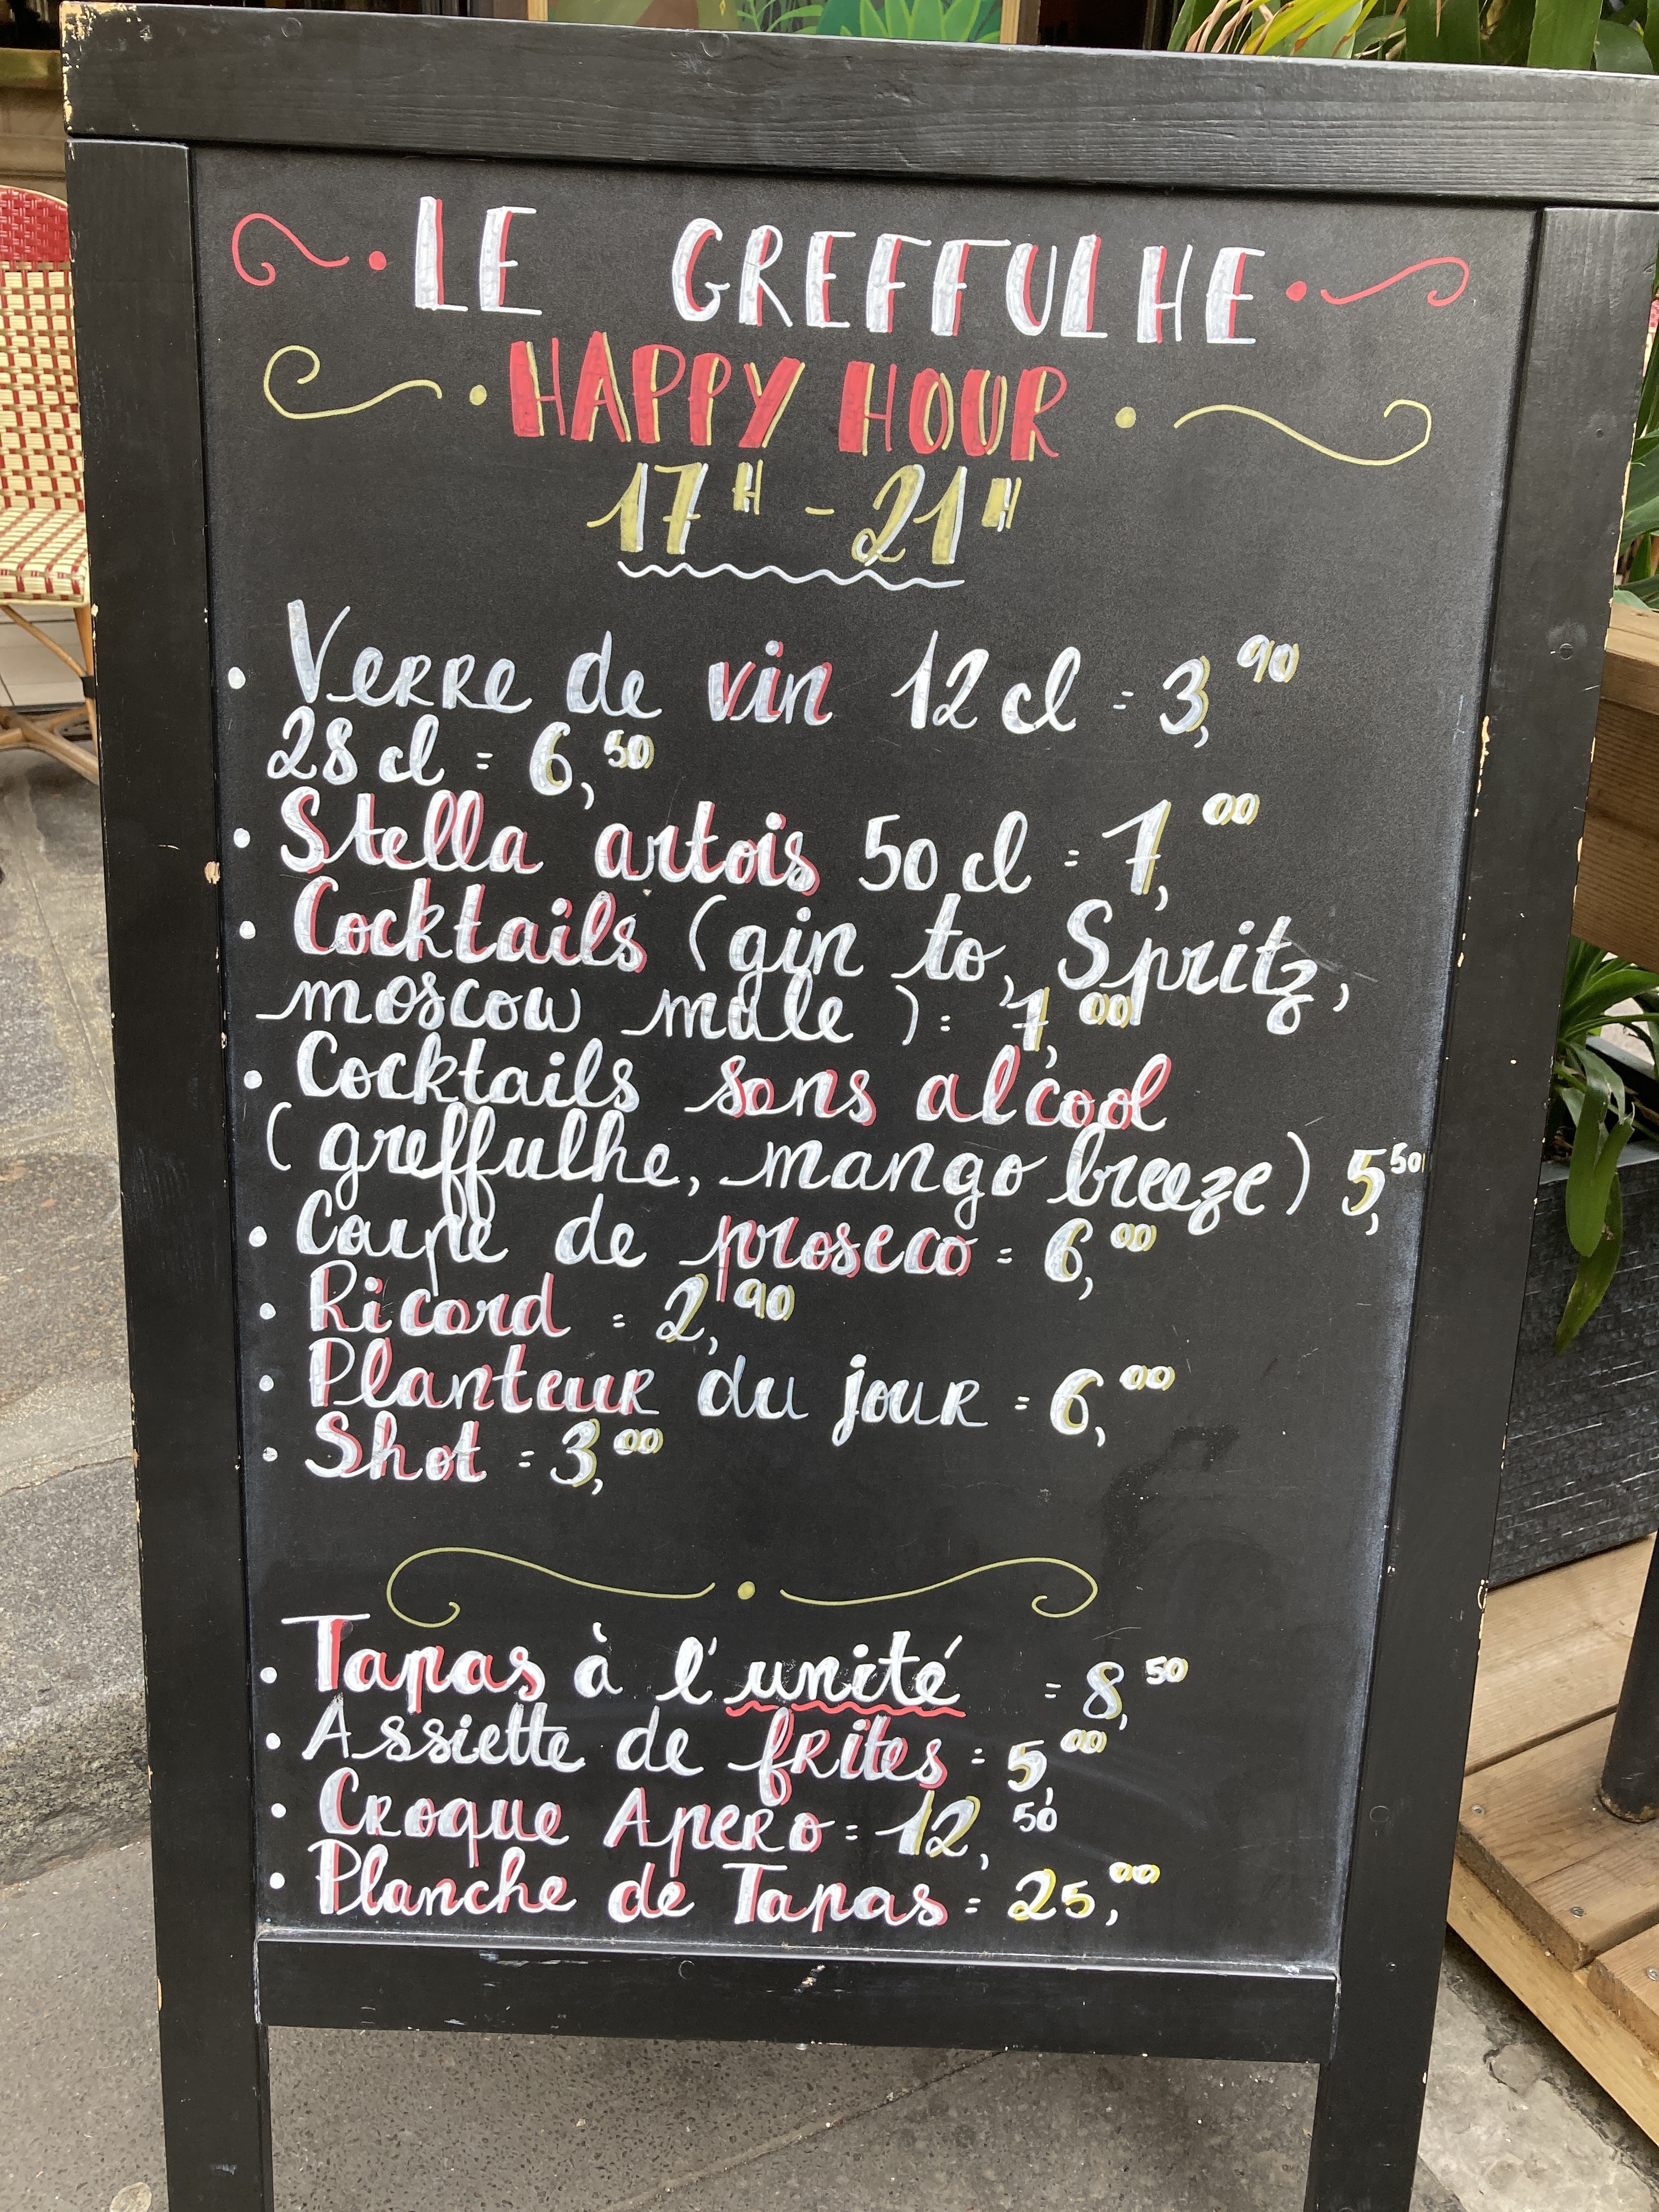 LE GREFFULHE
HAPPY HOUR
17H - 21H
• Verre de vin 12 cl = 3,90
28 cl = 6,50
• Stella artois 50 cl = 7,00
• Cocktails (gin to, Spritz,
moscow mule) = 7,00
• Cocktails sans alcool
(greffulhe, mango breeze) 5,50
• Coupe de proseco = 6,00
• Ricard = 2,90
• Planteur du jour = 6,00
• Shot = 3,00
• Tapas à l'unité = 8,50
• Assiette de frites = 5,00
• Croque Apero = 12,50
• Planche de Tapas = 25,00